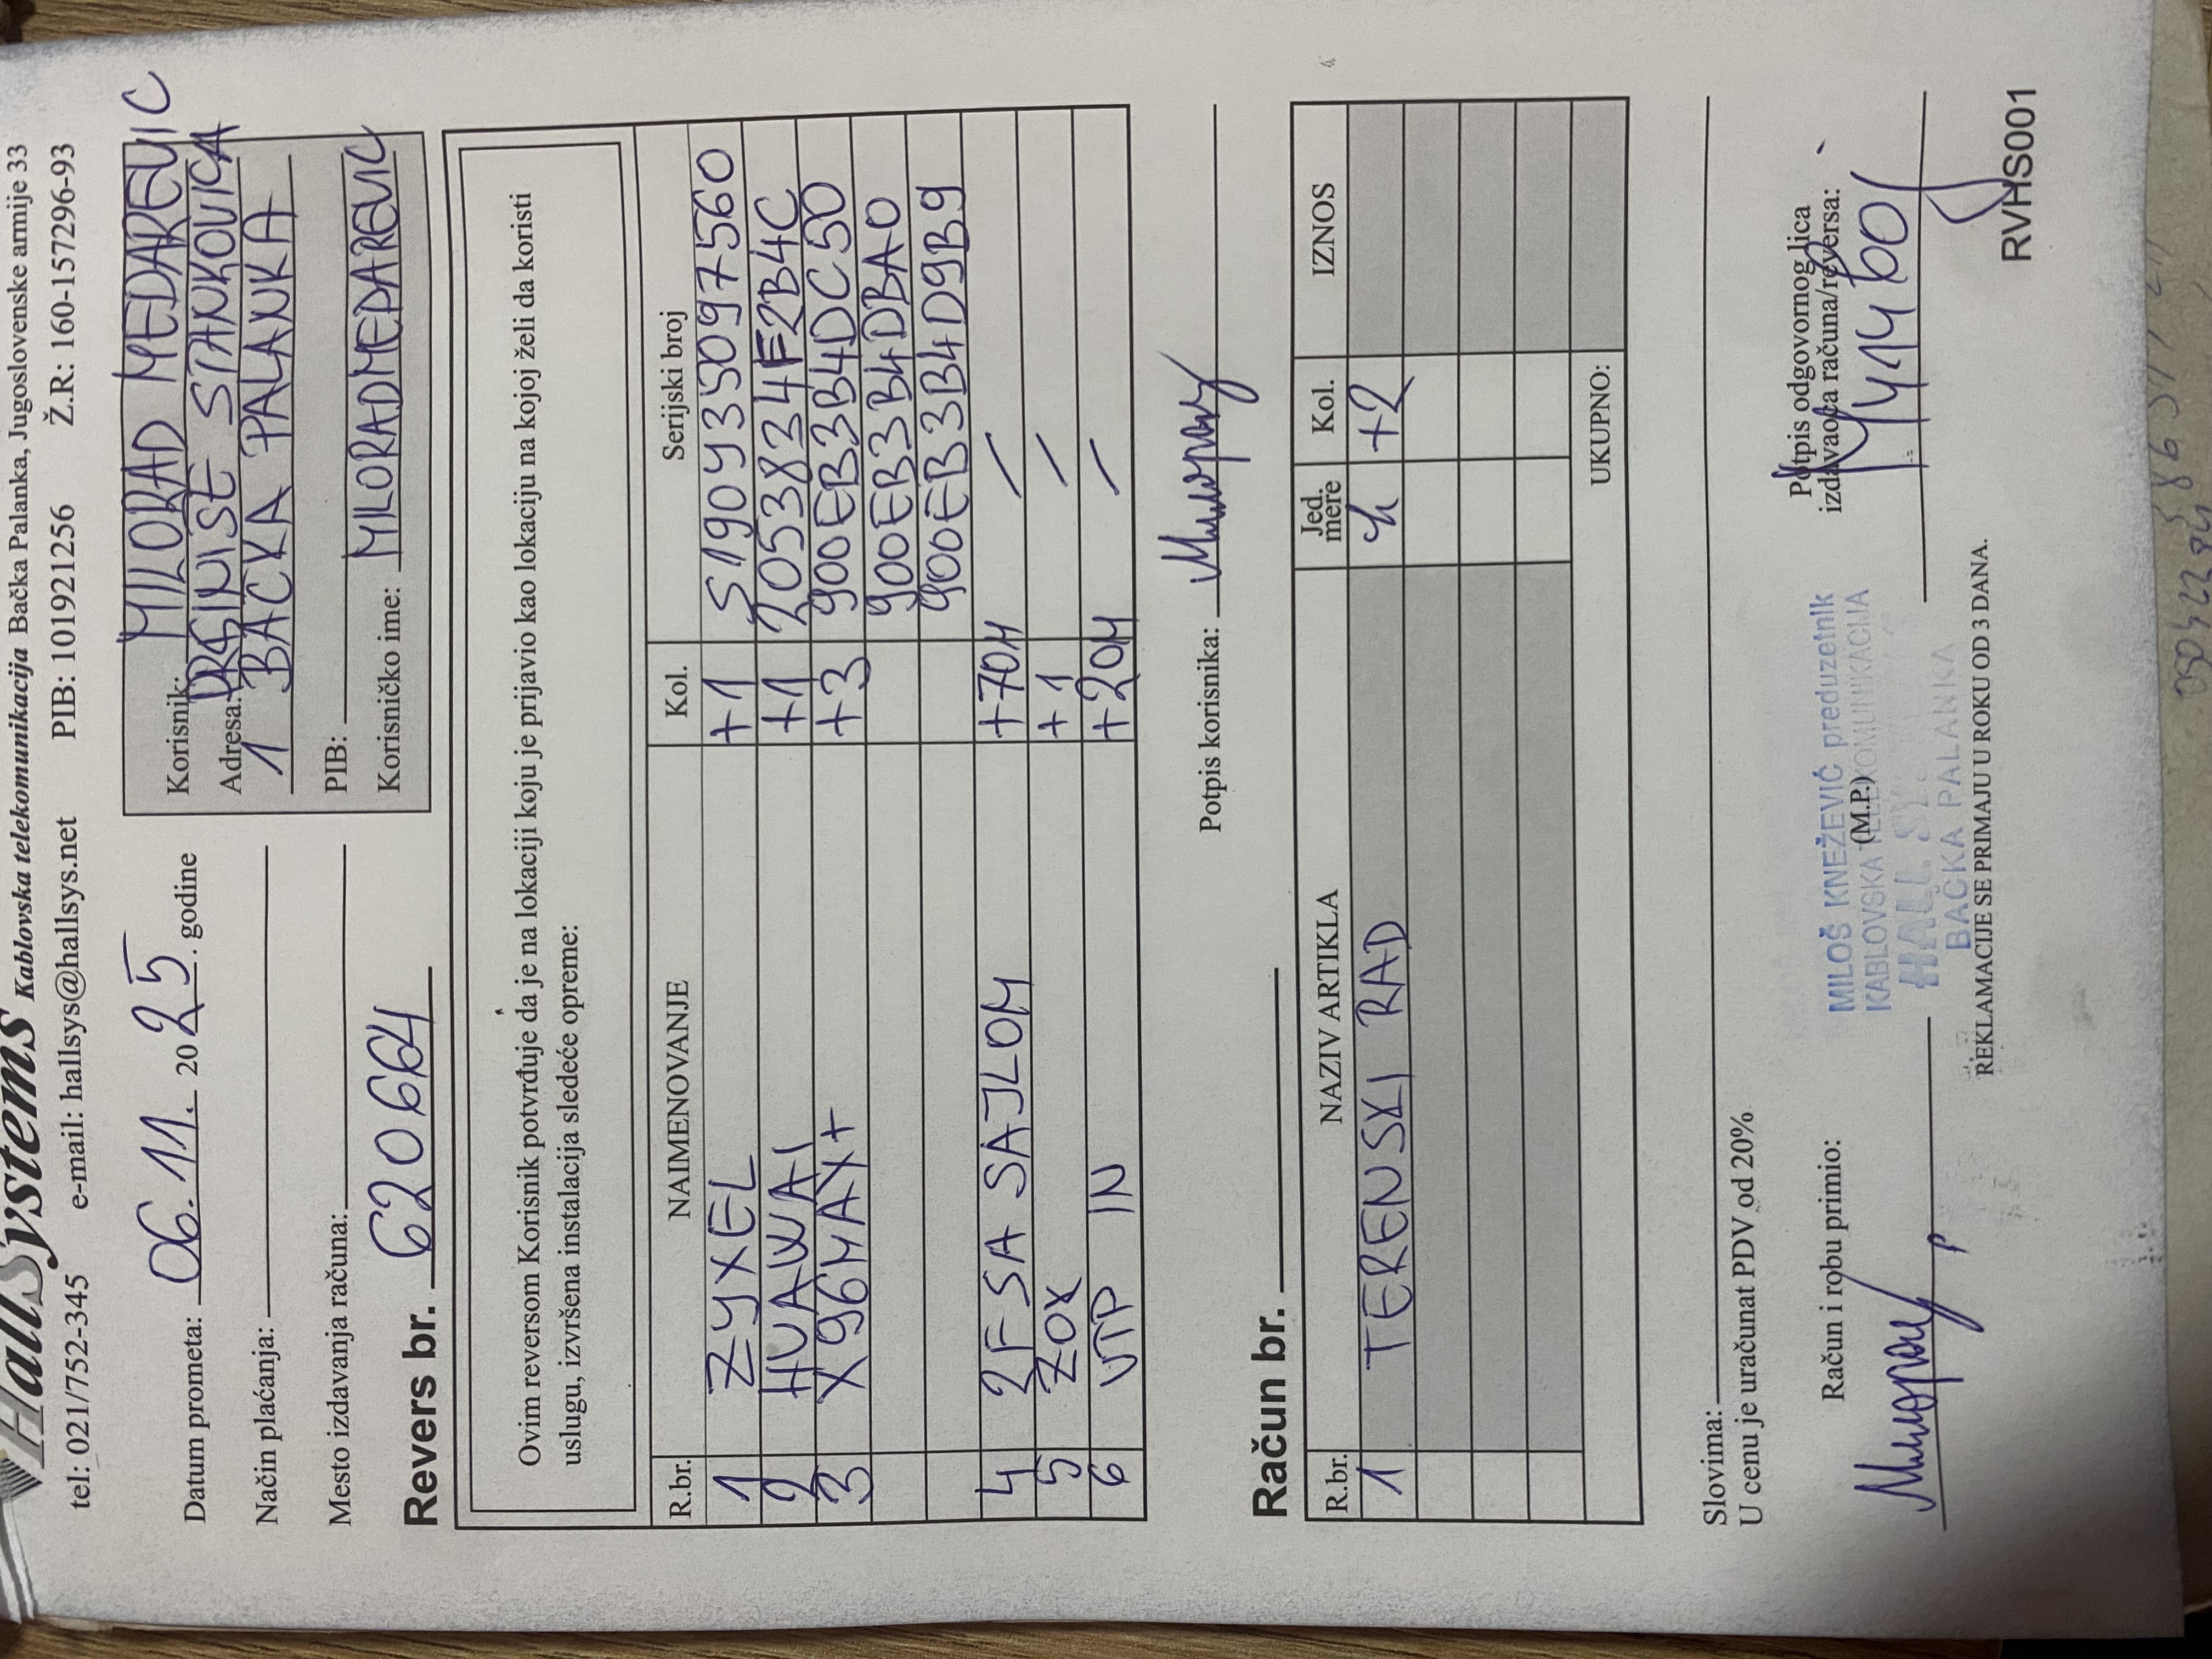 HallSystems Kablovska telekomunikacija Bačka Palanka, Jugoslovenske armije 33
tel: 021/752-345 e-mail: hallsys@hallsys.net PIB: 101921256 Ž.R: 160-157296-93
Datum prometa: 06.11. 2025. godine
Način plaćanja:
Mesto izdavanja računa:
Korisnik: MILORAD MEDAREVIC
Adresa: DRGINISE STANKOVICA
1 BACKA PALANKA
PIB:
Korisničko ime: MILORADMEDAREVIC
Revers br. 620664
Ovim reversom Korisnik potvrđuje da je na lokaciji koju je prijavio kao lokaciju na kojoj želi da koristi
uslugu, izvršena instalacija sledeće opreme:
R.br. NAIMENOVANJE Kol. Serijski broj
1 ZYXEL +1 S190Y35097560
2 HUAWAI +1 20538234F2B4C
3 X96MAX+ +3 900EB3B4DC50
900EB3B4DBA0
900EB3B4D9B9
4 2F SA SAJLOM +70M /
5 ZOK +1 /
6 UTP IN +20M /
Potpis korisnika: Милорад
Račun br.
R.br. NAZIV ARTIKLA Jed. mere Kol. IZNOS
1 TERENSKI RAD h +2
UKUPNO:
Slovima:
U cenu je uračunat PDV od 20%
Račun i robu primio:
Potpis odgovornog lica
izdavaoca računa/reversa:
Милорад
MILOŠ KNEŽEVIĆ preduzetnik
KABLOVSKA TELEKOMUNIKACIJA
(M.P.)
HALL SY
BAČKA PALANKA
REKLAMACIJE SE PRIMAJU U ROKU OD 3 DANA.
RVHS001